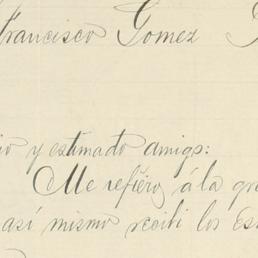 Francisco Gomez
y estimado amigo:
Me refiero á la
así mismo recibi los